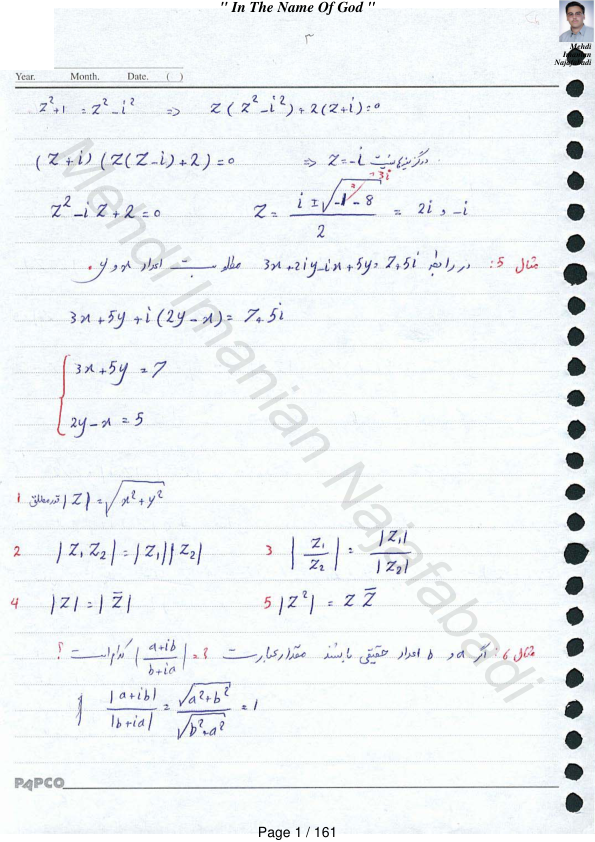 " In The Name Of God "
Mehdi
Imanian
Najafabadi
۳
Year. Month. Date. ( )
z²+1 = z²-i² => z(z²-i²)+2(z+i)=0
(z+i)(z(z-i)+2)=0 => z=-i
z²-iz+2=0 z= (i±√(-1-8))/2 = 2i و -i
+3i
مثال 5: در رابطه 3x+2iy-ix+5y=7+5i مطلوبست اعداد x و y.
3x+5y+i(2y-x)=7+5i
3x+5y=7
2y-x=5
1 قدرمطلق |z|=√(x²+y²)
2 |z₁z₂|=|z₁||z₂| 3 |z₁/z₂|=|z₁|/|z₂|
4 |z|=|z̄| 5 |z²|=z z̄
مثال 6: اگر a و b اعداد حقیقی باشند مقدار عبارت ?=|(a+ib)/(b+ia)| کدام است؟
|a+ib|/|b+ia| = √(a²+b²)/√(b²+a²) = 1
PAPCO
Mehdi Imanian Najafabadi
Page 1 / 161